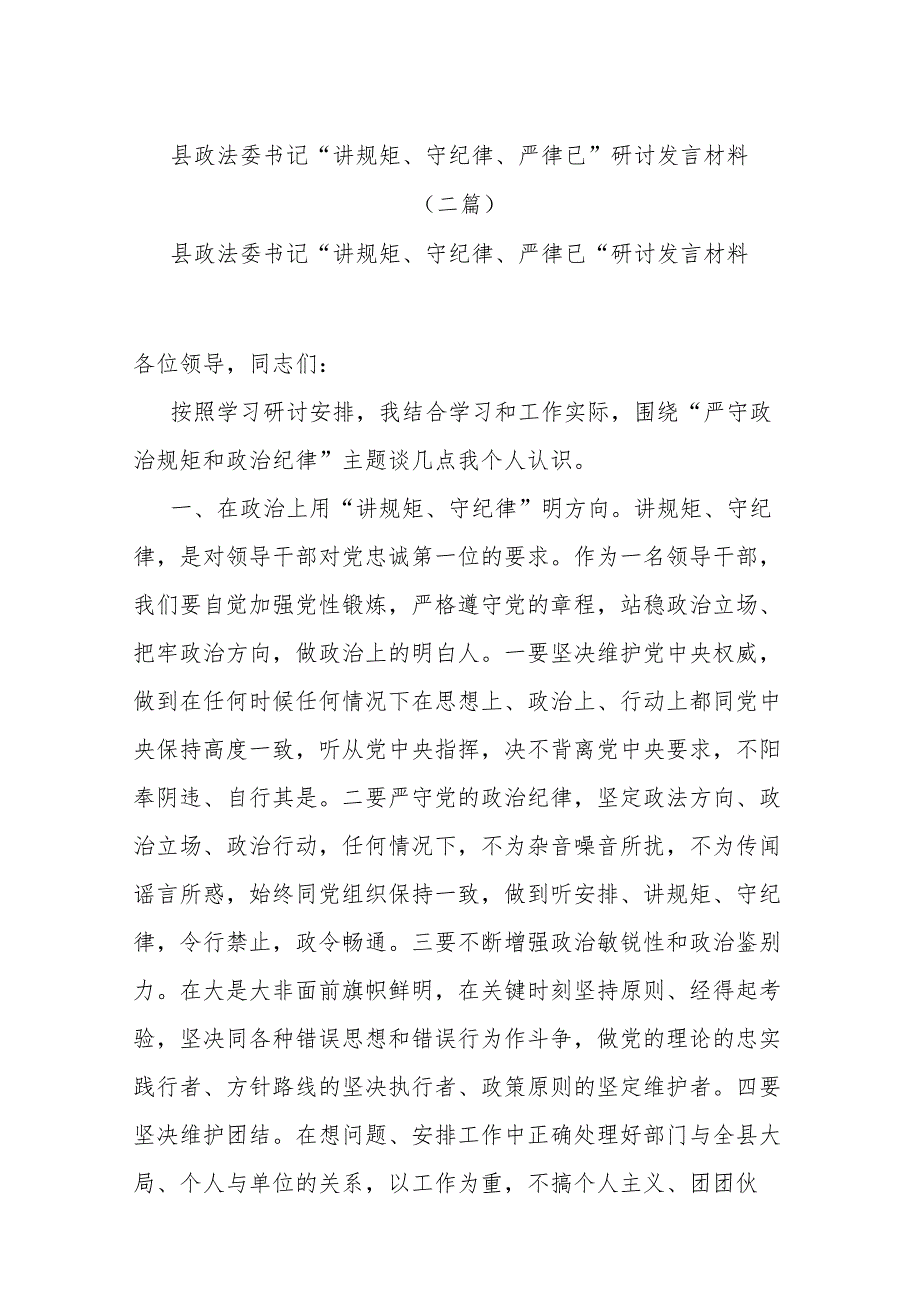 县政法委书记“讲规矩、守纪律、严律已”研讨发言材料
（二篇）
县政法委书记“讲规矩、守纪律、严律已“研讨发言材料
各位领导，同志们：
按照学习研讨安排，我结合学习和工作实际，围绕“严守政
治规矩和政治纪律”主题谈几点我个人认识。
一、在政治上用“讲规矩、守纪律”明方向。讲规矩、守纪
律，是对领导干部对党忠诚第一位的要求。作为一名领导干部，
我们要自觉加强党性锻炼，严格遵守党的章程，站稳政治立场、
把牢政治方向，做政治上的明白人。一要坚决维护党中央权威，
做到在任何时候任何情况下在思想上、政治上、行动上都同党中
央保持高度一致，听从党中央指挥，决不背离党中央要求，不阳
奉阴违、自行其是。二要严守党的政治纪律，坚定政法方向、政
治立场、政治行动，任何情况下，不为杂音噪音所扰，不为传闻
谣言所惑，始终同党组织保持一致，做到听安排、讲规矩、守纪
律，令行禁止，政令畅通。三要不断增强政治敏锐性和政治鉴别
力。在大是大非面前旗帜鲜明，在关键时刻坚持原则、经得起考
验，坚决同各种错误思想和错误行为作斗争，做党的理论的忠实
践行者、方针路线的坚决执行者、政策原则的坚定维护者。四要
坚决维护团结。在想问题、安排工作中正确处理好部门与全县大
局、个人与单位的关系，以工作为重，不搞个人主义、团团伙